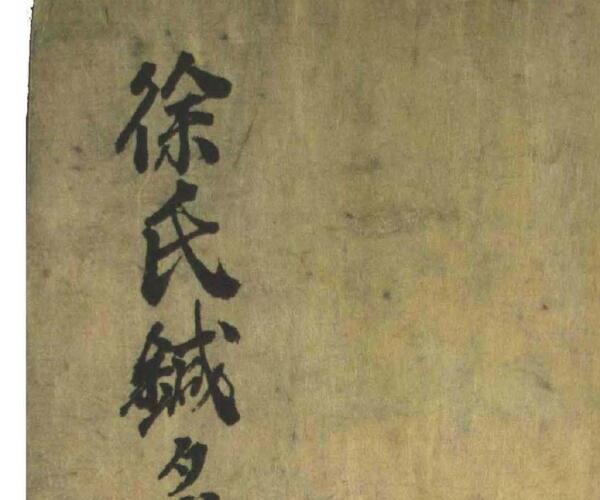 徐氏鍼